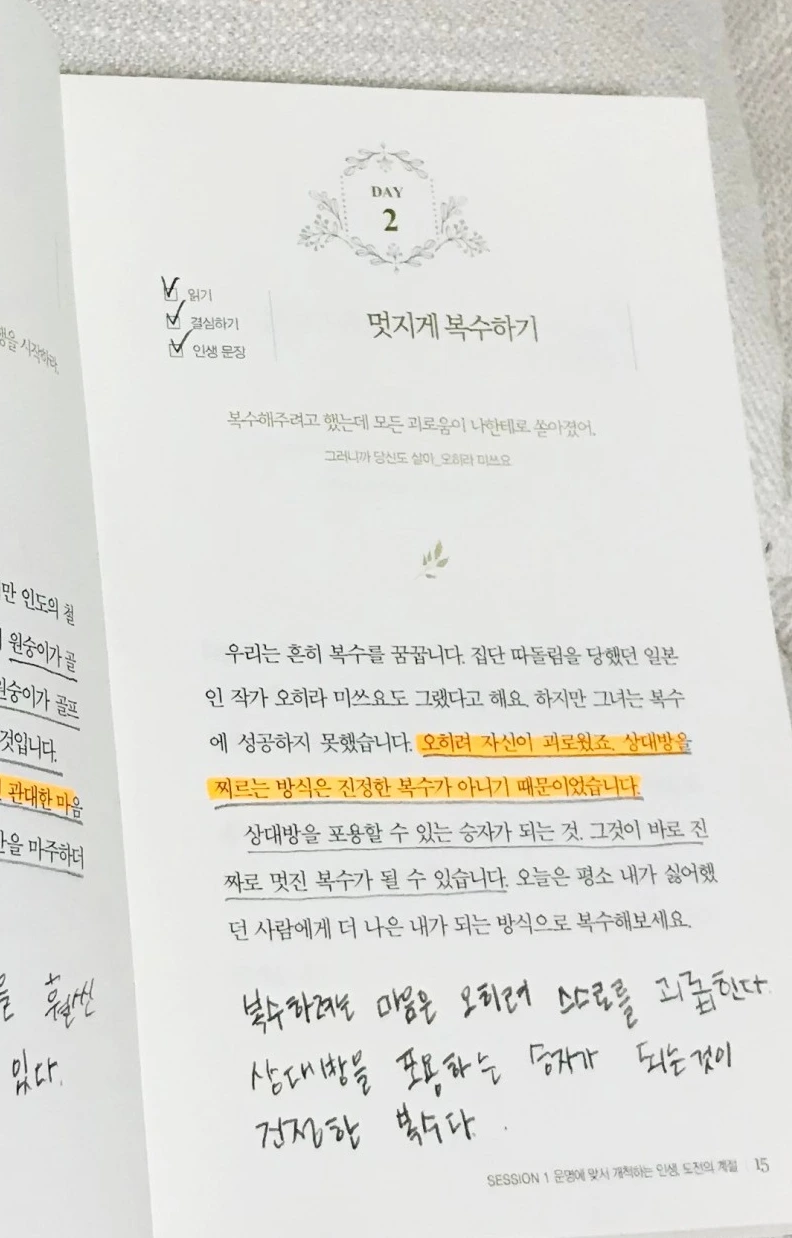 행을 시작하라.
만 인도의 철
원숭이가 골
원숭이가 골프
것입니다.
관대한 마음
을 마주하더
훨씬
있다.
DAY
2
읽기
결심하기
인생 문장
멋지게 복수하기
복수해주려고 했는데 모든 괴로움이 나한테로 쏟아졌어.
그러니까 당신도 살아_오히라 미쓰요
우리는 흔히 복수를 꿈꿉니다. 집단 따돌림을 당했던 일본
인 작가 오히라 미쓰요도 그랬다고 해요. 하지만 그녀는 복수
에 성공하지 못했습니다. 오히려 자신이 괴로웠죠. 상대방을
찌르는 방식은 진정한 복수가 아니기 때문이었습니다.
상대방을 포용할 수 있는 승자가 되는 것. 그것이 바로 진
짜로 멋진 복수가 될 수 있습니다. 오늘은 평소 내가 싫어했
던 사람에게 더 나은 내가 되는 방식으로 복수해보세요.
복수하려는 마음은 오히려 스스로를 괴롭힌다.
상대방을 포용하는 승자가 되는것이
진정한 복수다.
SESSION 1 운명에 맞서 개척하는 인생, 도전의 계절 15